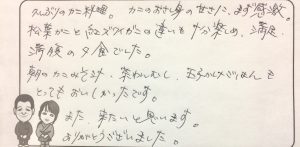 久しぶりのカニ料理。カニのおさし身の甘さに、まず感激。
松葉がにと紅ズワイガニの違いも十分楽しめ、満足
満腹の夕食でした。
朝のカニみそ汁・茶わんむし、玉子かけごはんも
とってもおいしかったです。
また、来たいと思います。
ありがとうございました。